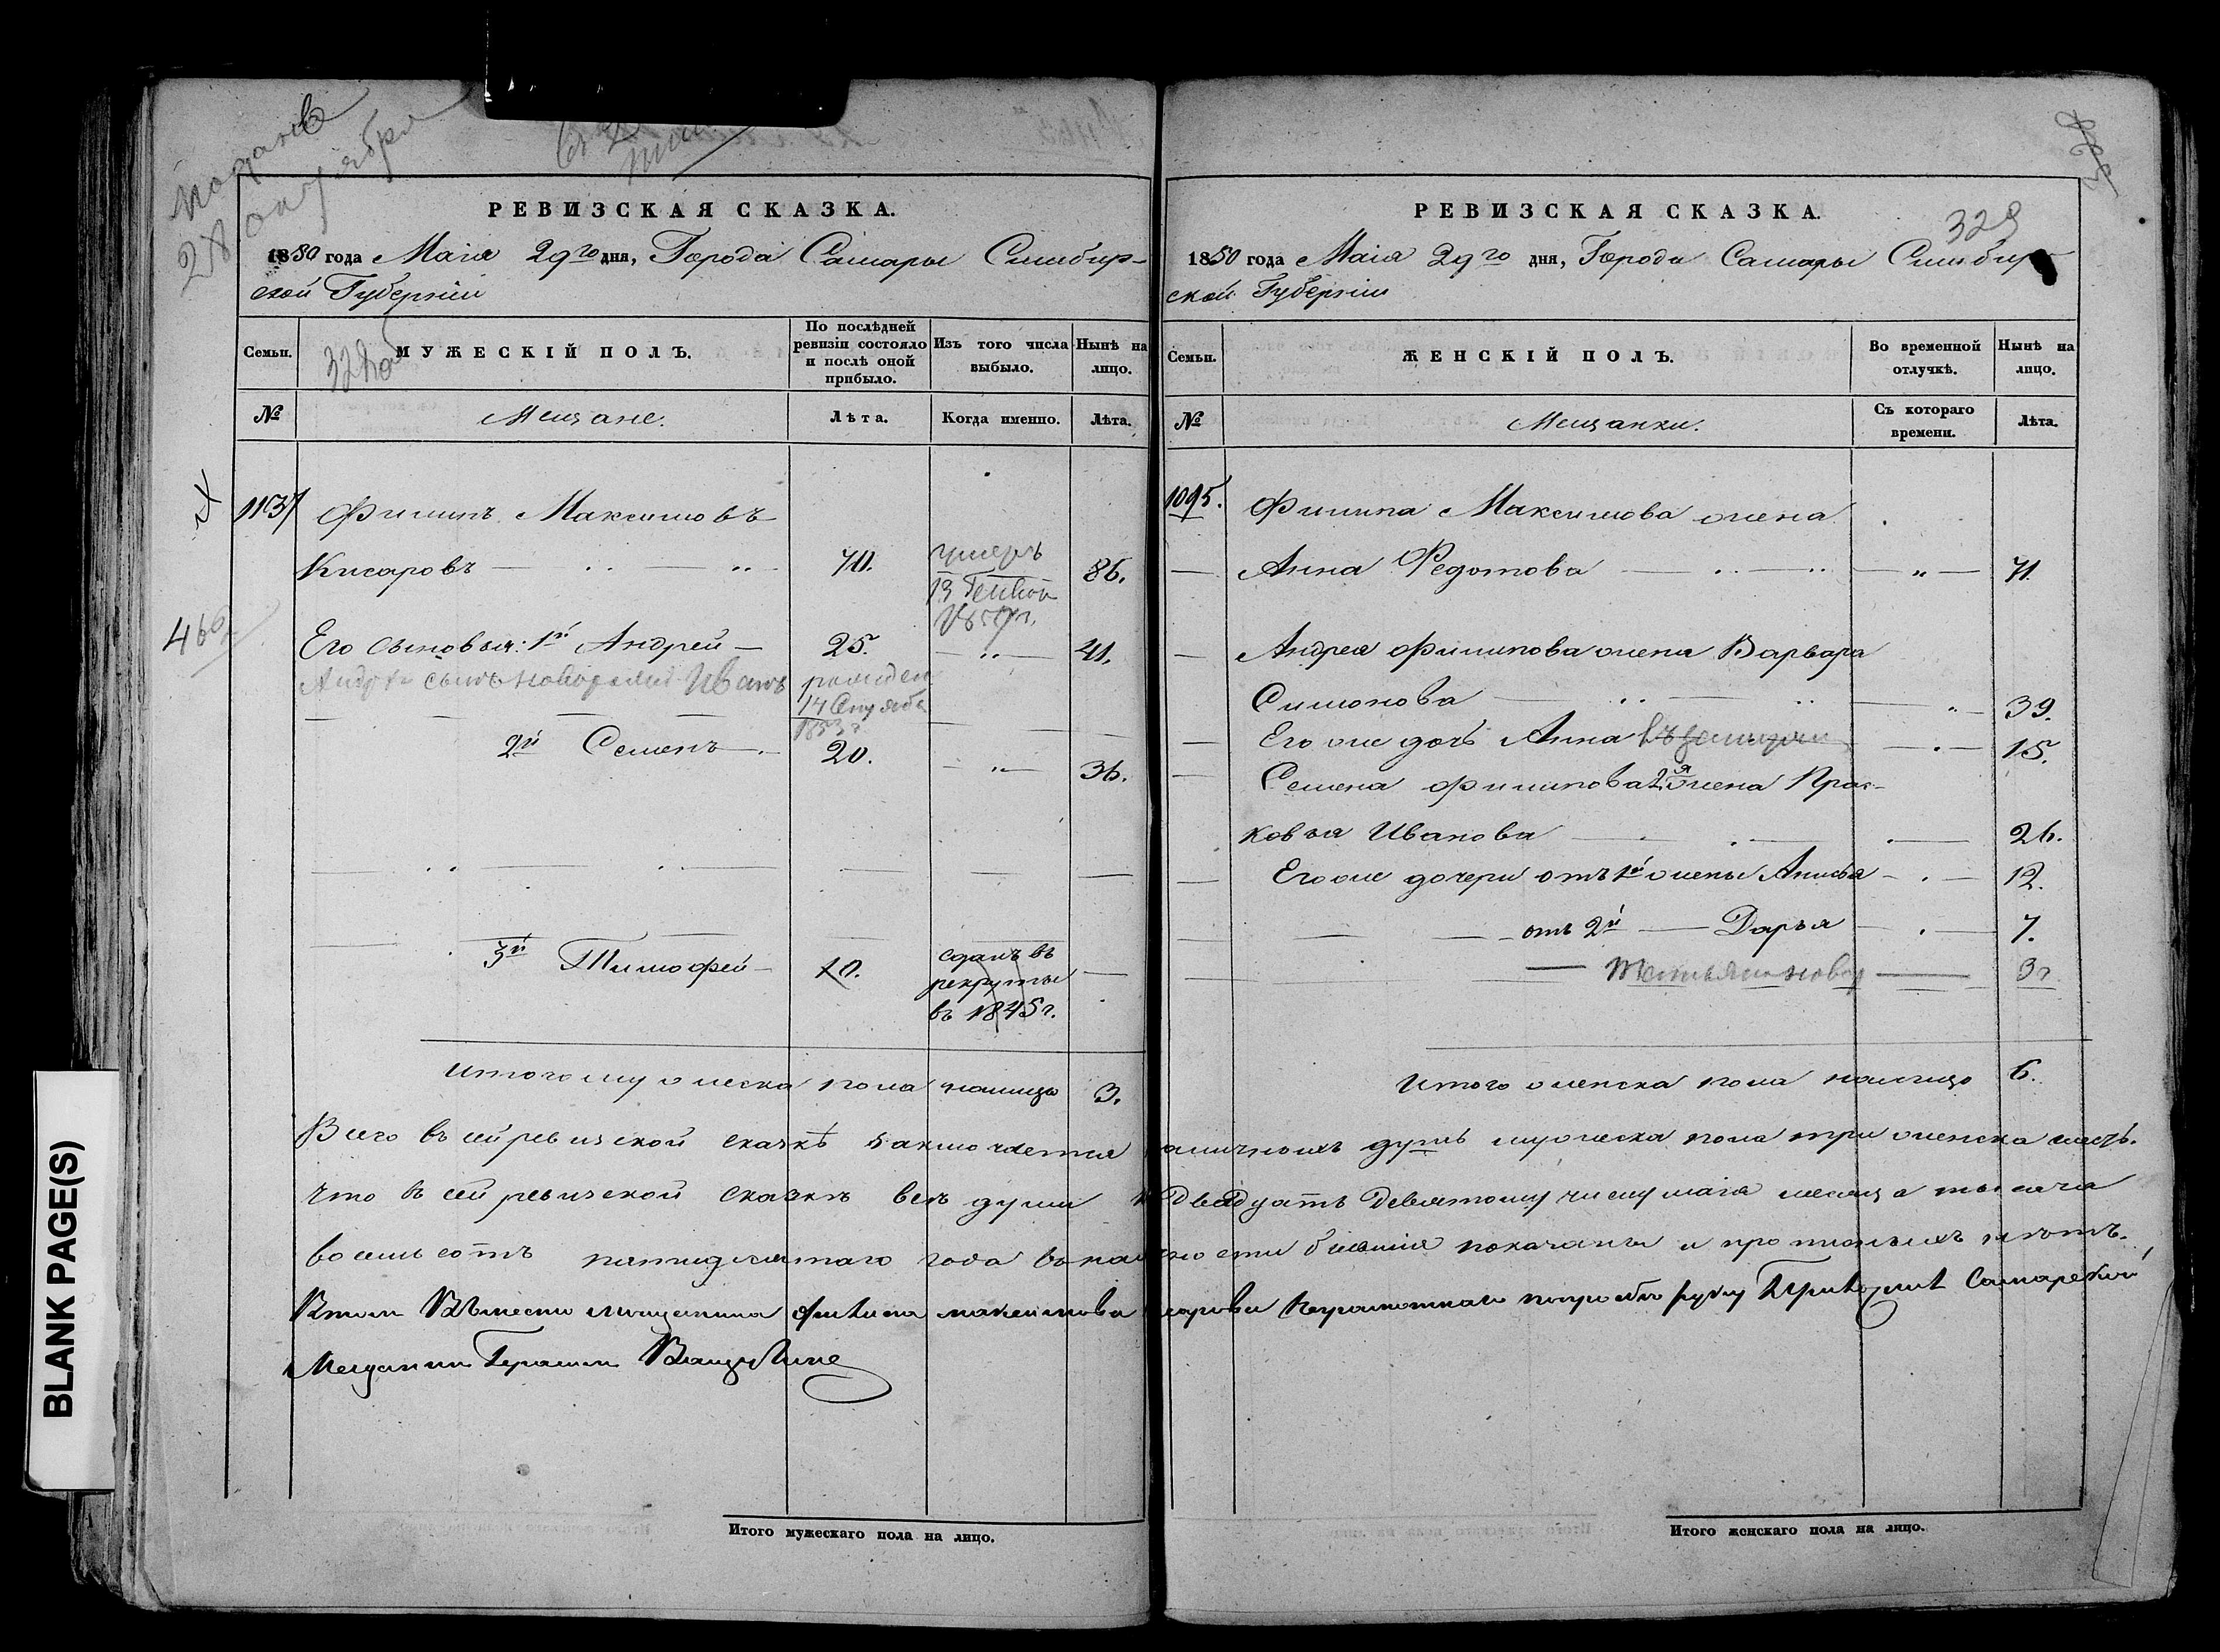 подано
28 октября
РЕВИЗСКАЯ СКАЗКА.
1850 года Маія 29го дня, Города Самары Симбир-
ской Губерніи
Семьи.
МУЖЕСКІЙ ПОЛЪ.
По послѣдней ревизіи состояло и послѣ оной прибыло.
Изъ того числа выбыло.
Нынѣ на лицо.
№
Мещане.
Лѣта.
Когда именно.
Лѣта.
1137
Филипъ Максимовъ
Кисаровъ 70. умеръ 86.
13
460
Его сыновья: 1й Андрей 25. 41.
Андрея сынъ новорожд Иванъ рожден
14
1853 г
2й Семенъ 20. 36.
3й Тимофей 10. сданъ въ
рекруты
въ 1845 г.
Итого мужеска пола налицо 3.
329
РЕВИЗСКАЯ СКАЗКА.
1850 года Маія 29го дня, Города Самары Симбир
ской Губерніи
Семьи.
ЖЕНСКІЙ ПОЛЪ.
Во временной отлучкѣ.
Нынѣ на лицо.
№
Мещанки.
Съ котораго времени.
Лѣта.
1095.
Филипа Максимова жена
Анна Федотова 71.
Андрея Филипова жена Варвара
Симонова 39.
Его же дочь Анна 15.
Семена Филипова 2я жена Прас-
ковья Иванова 26.
Его же дочери отъ 1й жены Анисья 12.
отъ 2й Дарья 7.
3 г
Итого женска пола налицо 6.
Всего въ сей ревизской сказкѣ заключается наличныхъ душъ мужеска пола три женска шесть.
Что въ сей ревизской сказкѣ всѣ души к двадцать девятому числу маія месяца тысяча
восемьсотъ пятидесятаго года въ наличности бывшія показаны и прописныхъ нѣтъ.
Вместо мещанина Филипа Максимова неграмотнаго руку приложилъ Самарской
Мещанин Герасим
Итого мужескаго пола на лицо.
Итого женскаго пола на лицо.
BLANK PAGE(S)